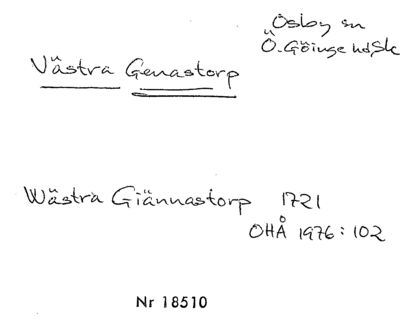 Osby sn
Ö. Göinge hd, Sk
Västra Genastorp
Wästra Giännastorp 1721
OHÅ 1976: 102
Nr 18510